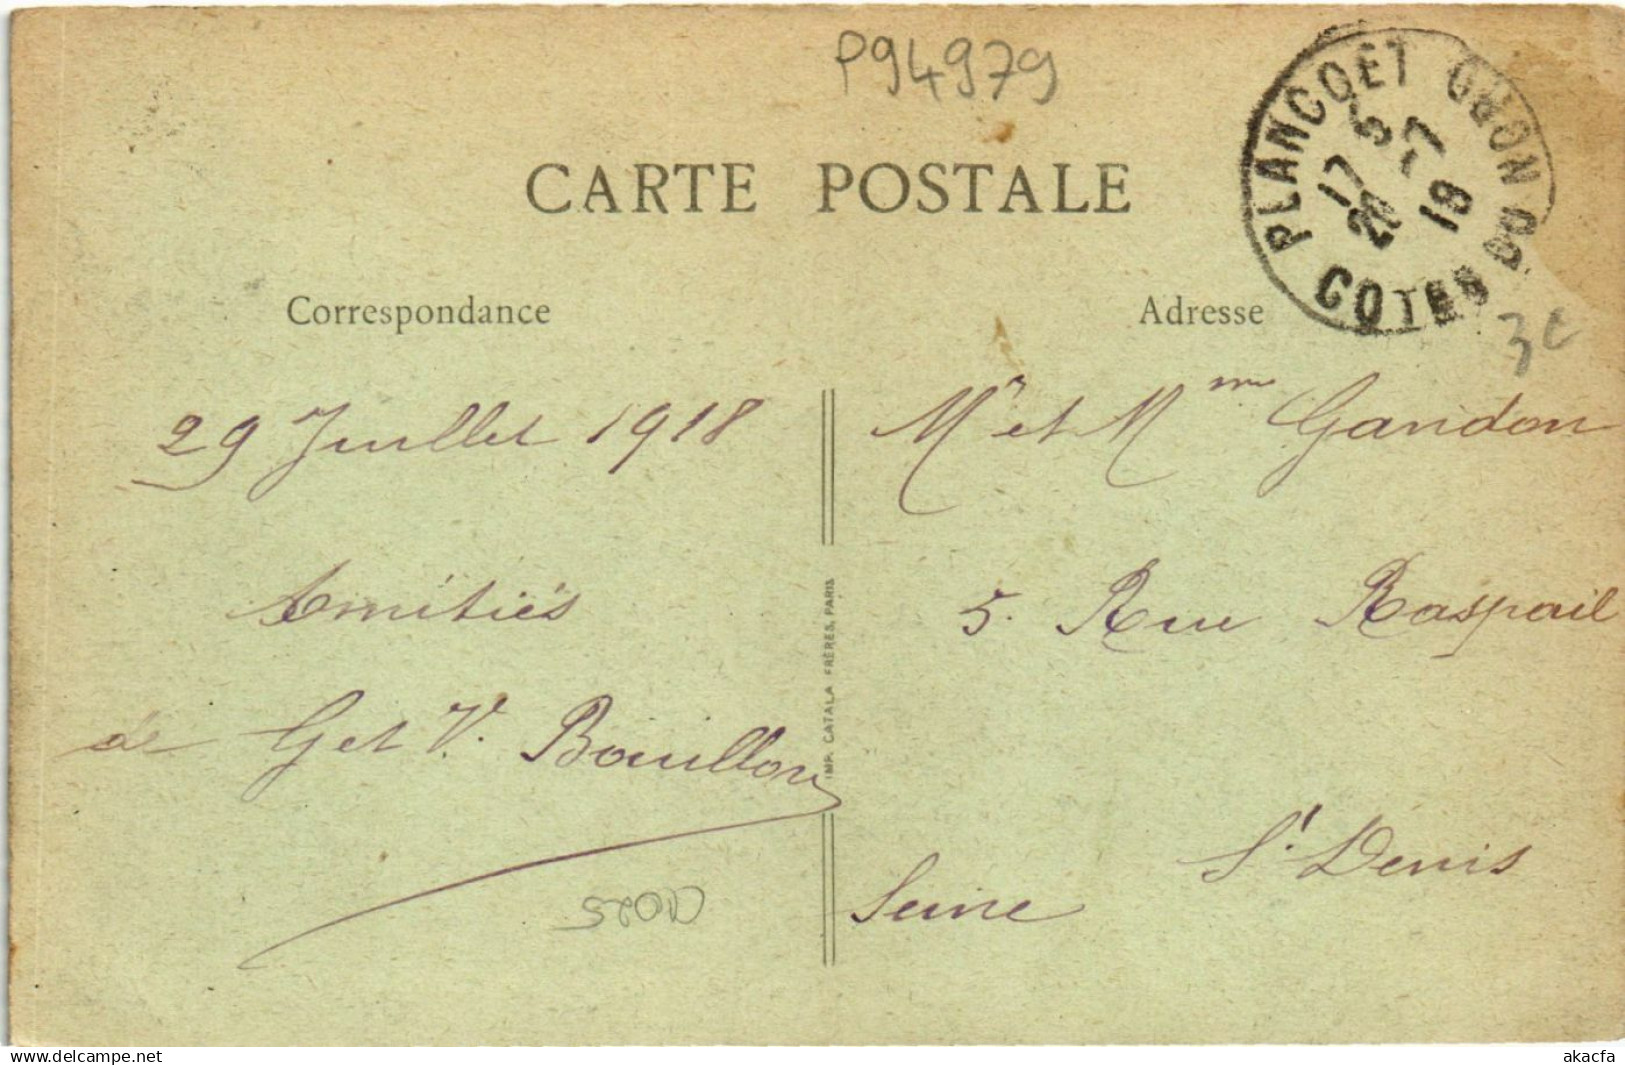 P94979
CARTE POSTALE
PLANCOËT
COTES DU NORD
17
18
Correspondance
Adresse
3€
29 Juillet 1918
Mr et Mme Gandon
Amitiés
5. Rue Raspail
de G et V. Bouillon
St Denis
Seine
IMP. CATALA FRÈRES, PARIS
www.delcampe.net
akacfa